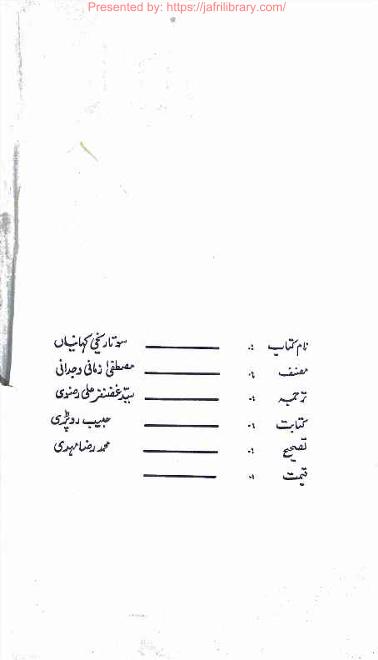 Presented by: https://jafrilibrary.com/
نام کتاب :۔ ــــــــــــ سو تاریخی کہانیاں
مصنف :۔ ــــــــــــ مصطفیٰ زمانی وجدانی
ترجمہ :۔ ــــــــــــ سیّد غضنفر علی رضوی
کتابت :۔ ــــــــــــ حبیب
تصحیح :۔ ــــــــــــ محمد رضا مہدی
قیمت :۔ ــــــــــــ